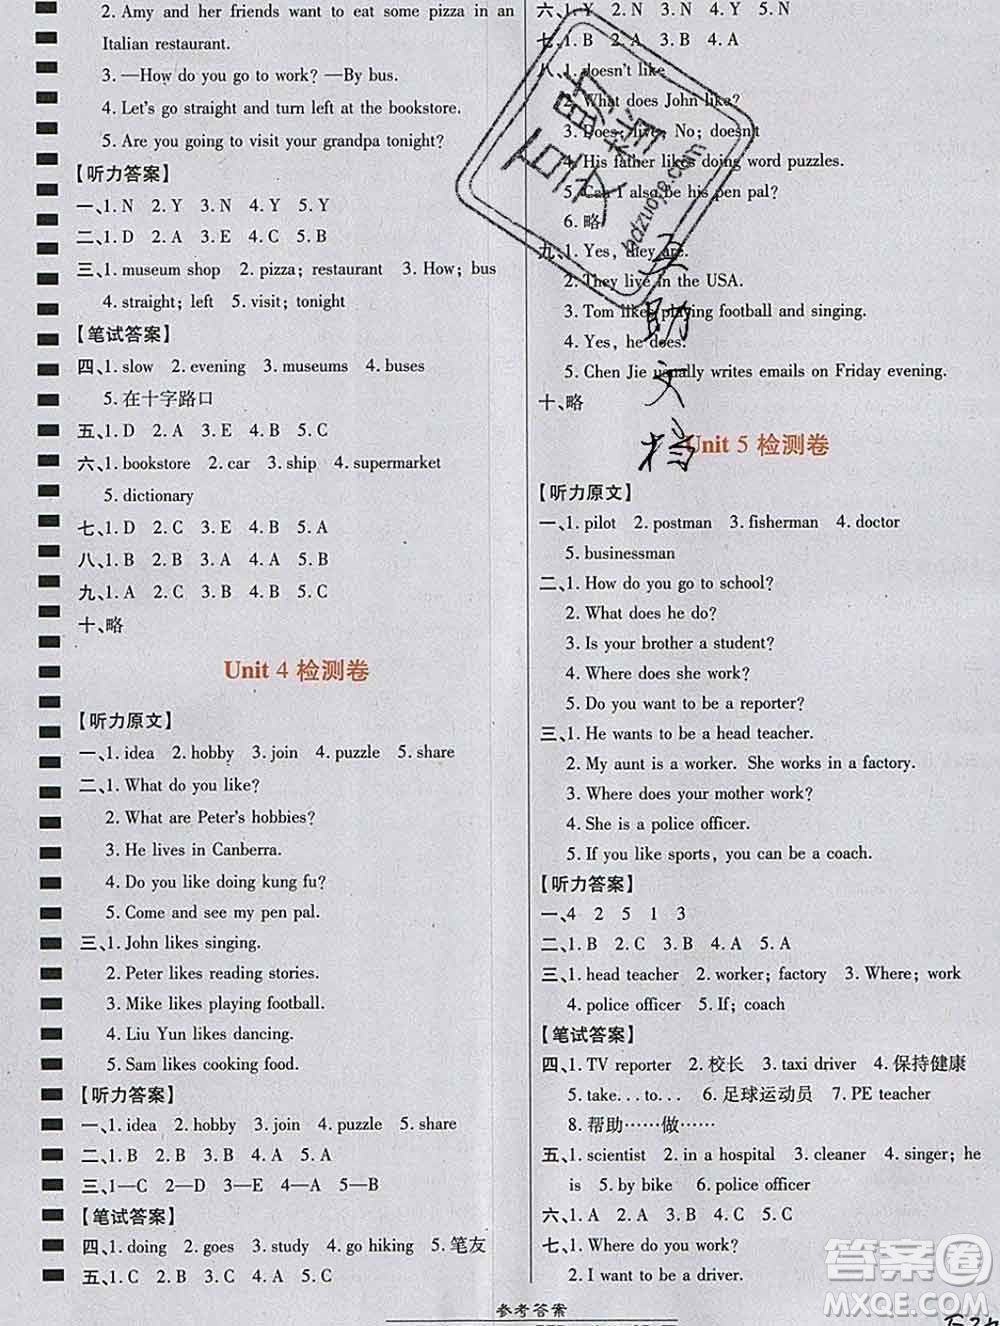 2. Amy and her friends want to eat some pizza in an
Italian restaurant.
3. —How do you go to work? —By bus.
4. Let's go straight and turn left at the bookstore.
5. Are you going to visit your grandpa tonight?
【听力答案】
一、1. N 2. Y 3. N 4. Y 5. Y
二、1. D 2. A 3. E 4. C 5. B
三、1. museum shop 2. pizza; restaurant 3. How; bus
4. straight; left 5. visit; tonight
【笔试答案】
四、1. slow 2. evening 3. museums 4. buses
5. 在十字路口
五、1. D 2. A 3. E 4. B 5. C
六、1. bookstore 2. car 3. ship 4. supermarket
5. dictionary
七、1. D 2. C 3. E 4. B 5. A
八、1. B 2. B 3. A 4. B 5. A
九、1. A 2. C 3. B 4. B 5. B
十、略
Unit 4 检测卷
【听力原文】
一、1. idea 2. hobby 3. join 4. puzzle 5. share
二、1. What do you like?
2. What are Peter's hobbies?
3. He lives in Canberra.
4. Do you like doing kung fu?
5. Come and see my pen pal.
三、1. John likes singing.
2. Peter likes reading stories.
3. Mike likes playing football.
4. Liu Yun likes dancing.
5. Sam likes cooking food.
【听力答案】
一、1. idea 2. hobby 3. join 4. puzzle 5. share
二、1. B 2. B 3. A 4. A 5. A
三、1—C 2—D 3—E 4—A 5—B
【笔试答案】
四、1. doing 2. goes 3. study 4. go hiking 5. 笔友
五、1. C 2. A 3. C 4. B 5. C
六、1. Y 2. N 3. N 4. Y 5. N
七、1. B 2. A 3. B 4. A
八、1. doesn't like
2. What does John like?
3. Does; live; No; doesn't
4. His father likes doing word puzzles.
5. Can I also be his pen pal?
6. 略
九、1. Yes, they are.
2. They live in the USA.
3. Tom likes playing football and singing.
4. Yes, he does.
5. Chen Jie usually writes emails on Friday evening.
十、略
Unit 5 检测卷
【听力原文】
一、1. pilot 2. postman 3. fisherman 4. doctor
5. businessman
二、1. How do you go to school?
2. What does he do?
3. Is your brother a student?
4. Where does she work?
5. Do you want to be a reporter?
三、1. He wants to be a head teacher.
2. My aunt is a worker. She works in a factory.
3. Where does your mother work?
4. She is a police officer.
5. If you like sports, you can be a coach.
【听力答案】
一、4 2 5 1 3
二、1. B 2. C 3. B 4. A 5. A
三、1. head teacher 2. worker; factory 3. Where; work
4. police officer 5. If; coach
【笔试答案】
四、1. TV reporter 2. 校长 3. taxi driver 4. 保持健康
5. take…to… 6. 足球运动员 7. PE teacher
8. 帮助……做……
五、1. scientist 2. in a hospital 3. cleaner 4. singer; he
is 5. by bike 6. police officer
六、1. A 2. A 3. B 4. C 5. A
七、1. Where do you work?
2. I want to be a driver.
参考答案
百助文档
bdzuoye.com
互助文档
答案圈
MXQE.COM